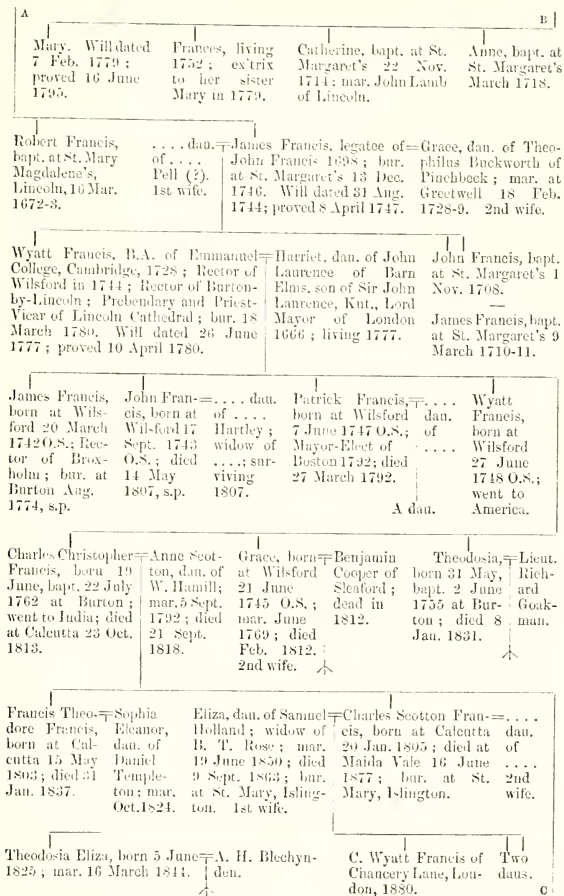 A
B
Mary. Will dated
7 Feb. 1779 ;
proved 16 June
1795.
Frances, living
1752 ; ex'trix
to her sister
Mary in 1779.
Catherine, bapt. at St.
Margaret's 22 Nov.
1714 ; mar. John Lamb
of Lincoln.
Anne, bapt. at
St. Margaret's
March 1718.
Robert Francis,
bapt. at St. Mary
Magdalene's,
Lincoln, 16 Mar.
1672-3.
. . . . dau.
of . . . .
Pell (?).
1st wife.
James Francis, legatee of
John Francis 1698 ; bur.
at St. Margaret's 13 Dec.
1746. Will dated 31 Aug.
1744; proved 8 April 1747.
Grace, dau. of Theo-
philus Buckworth of
Pinchbeck ; mar. at
Greetwell 18 Feb.
1728-9. 2nd wife.
Wyatt Francis, B.A. of Emmanuel
College, Cambridge, 1728 ; Rector of
Wilsford in 1744 ; Rector of Burton-
by-Lincoln ; Prebendary and Priest-
Vicar of Lincoln Cathedral ; bur. 18
March 1780. Will dated 26 June
1777 ; proved 10 April 1780.
Harriet, dau. of John
Laurence of Barn
Elms, son of Sir John
Laurence, Knt., Lord
Mayor of London
1666 ; living 1777.
John Francis, bapt.
at St. Margaret's 1
Nov. 1708.
—
James Francis, bapt.
at St. Margaret's 9
March 1710-11.
James Francis,
born at Wils-
ford 20 March
1742 O.S.; Rec-
tor of Brox-
holm ; bur. at
Burton Aug.
1774, s.p.
John Fran-
cis, born at
Wilsford 17
Sept. 1743
O.S. ; died
14 May
1807, s.p.
. . . . dau.
of . . . .
Hartley ;
widow of
. . . . ; sur-
viving
1807.
Patrick Francis,
born at Wilsford
7 June 1747 O.S.;
Mayor-Elect of
Boston 1792; died
27 March 1792.
. . . .
dau.
of
. . . .
A dau.
Wyatt
Francis,
born at
Wilsford
27 June
1748 O.S.;
went to
America.
Charles Christopher
Francis, born 19
June, bapt. 22 July
1762 at Burton ;
went to India; died
at Calcutta 23 Oct.
1813.
Anne Scot-
ton, dau. of
W. Hamill;
mar. 5 Sept.
1792 ; died
21 Sept.
1818.
Grace, born
at Wilsford
21 June
1745 O.S. ;
mar. June
1769 ; died
Feb. 1812.
2nd wife.
Benjamin
Cooper of
Sleaford ;
dead in
1812.
Theodosia,
born 31 May,
bapt. 2 June
1755 at Bur-
ton ; died 8
Jan. 1831.
Lieut.
Rich-
ard
Goak-
man.
Francis Theo-
dore Francis,
born at Cal-
cutta 15 May
1803 ; died 31
Jan. 1837.
Sophia
Eleanor,
dau. of
Daniel
Temple-
ton ; mar.
Oct. 1824.
Eliza, dau. of Samuel
Holland ; widow of
B. T. Rose ; mar.
19 June 1850 ; died
9 Sept. 1863 ; bur.
at St. Mary, Isling-
ton. 1st wife.
Charles Scotton Fran-
cis, born at Calcutta
20 Jan. 1805 ; died at
Maida Vale 16 June
1877 ; bur. at St.
Mary, Islington.
. . . .
dau.
of
. . . .
2nd
wife.
Theodosia Eliza, born 5 June
1825 ; mar. 16 March 1844.
A. H. Blechyn-
den.
C. Wyatt Francis of
Chancery Lane, Lon-
don, 1880.
Two
daus.
C